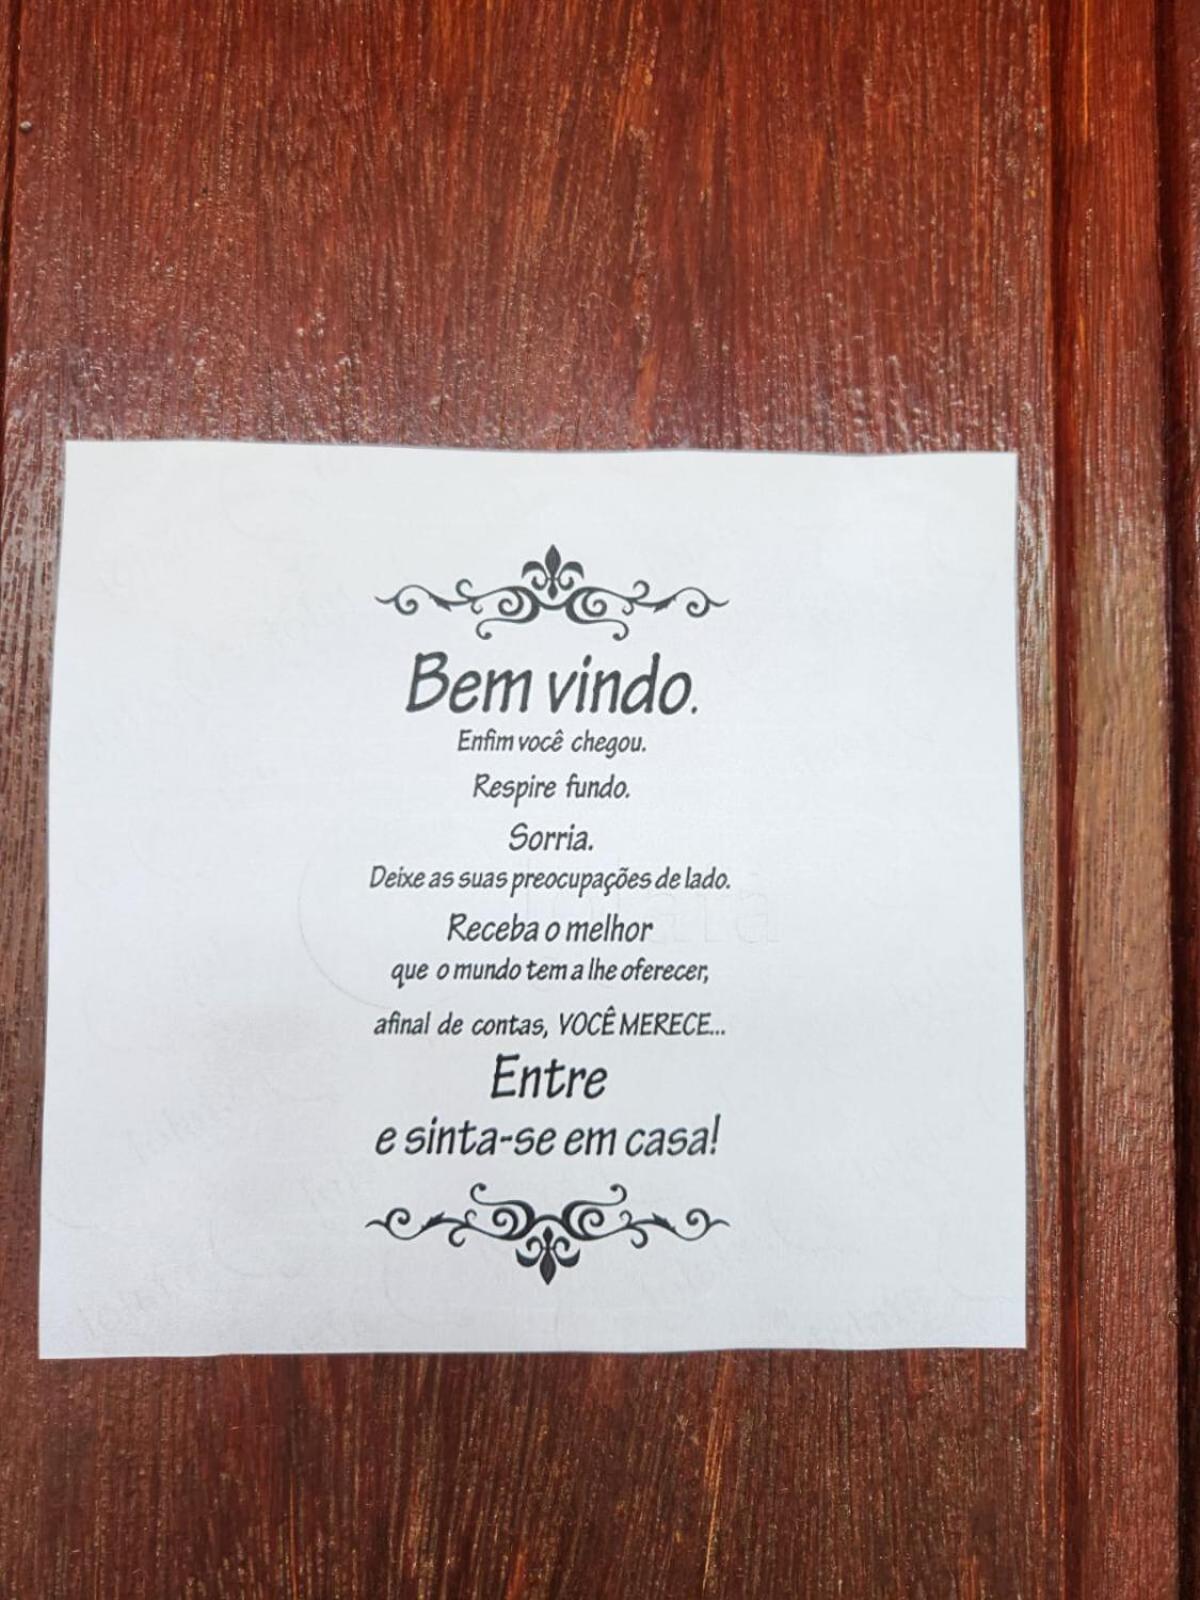 Bem vindo.
Enfim você chegou.
Respire fundo.
Sorria.
Deixe as suas preocupações de lado.
Receba o melhor
que o mundo tem a lhe oferecer,
afinal de contas, VOCÊ MERECE...
Entre
e sinta-se em casa!